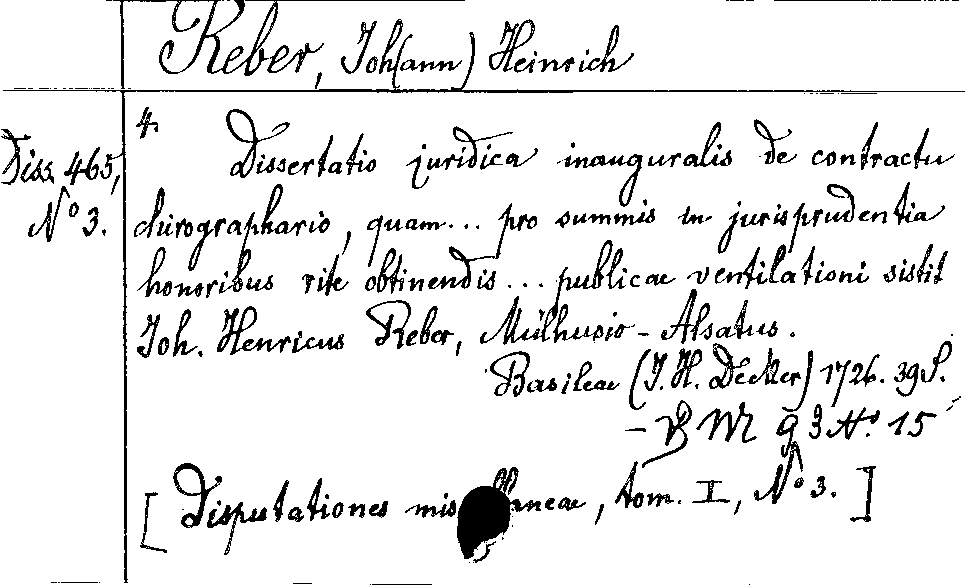 Reber, Joh(ann) Heinrich
4.
Diss. 465,
Nº 3.
Dissertatio juridica inauguralis de contractu
chirographario, quam... pro summis in jurisprudentia
honoribus rite obtinendis... publicae ventilationi sistit
Joh. Henricus Reber, Mülhusio-Alsatus.
Basileae (J. H. Decker) 1726. 39 S.
[Disputationes mis llaneae, tom. I, Nº 3.]